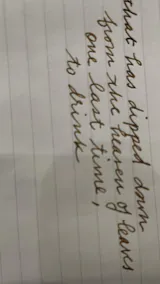 that has dipped down
from the heaven of leaves
one last time,
to drink